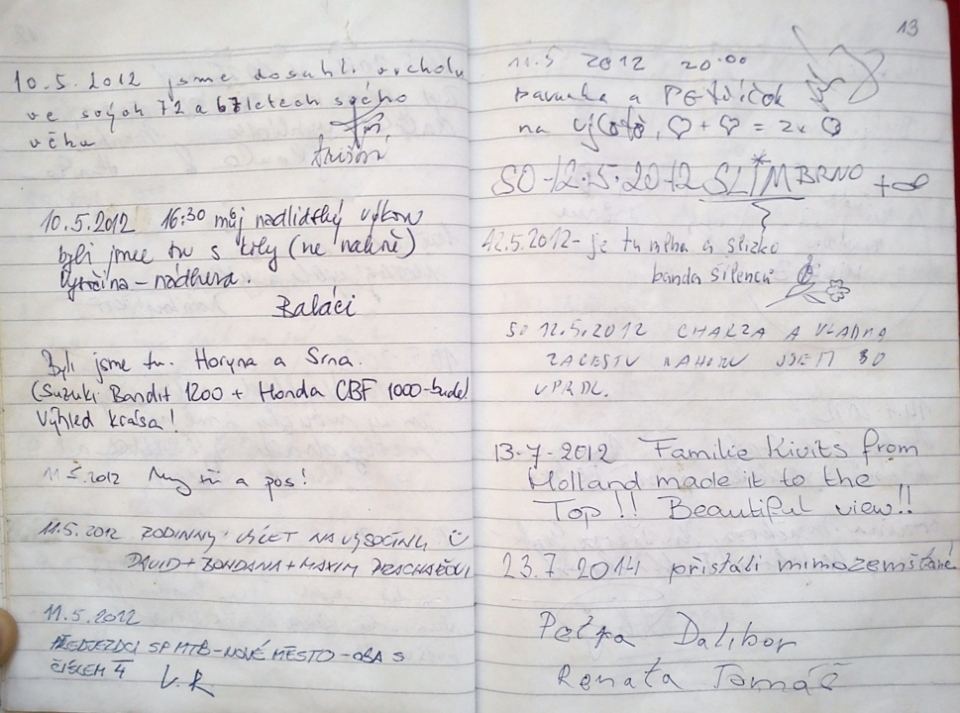 10.5.2012 jsme dosáhli vrcholu
ve svých 72 a 67 letech svého
věku
10.5.2012 16:30 můj nadlidský výkon
byli jsme tu s koly (ne nahně)
Vysočina – nádhera.
Baláci
Byli jsme tu. Horyna a Srna.
(Suzuki Bandit 1200 + Honda CBF 1000-bude)
Výhled krása!
11.5.2012 My tři a pes!
11.5.2012 RODINNÝ VÝLET NA VYSOČINU
DAVID + BOHDANA + MAXIM
11.5.2012
PŘEDJEZDCI SP MTB – NOVÉ MĚSTO – OBA S
ČÍSLEM 4
V.R
13
11.5 2012 20:00
a PETŘÍČEK
na výletě, ♡ + ♡ = 2x ♡
SO-12.5.2012 SLIM BRNO + ∞
12.5.2012 - je tu mlha a slizko
banda šílenců
SO 12.5.2012 CHALZA A VLADNA
ZA CESTU NAHORU JSEM SO
UPRDL.
13-7-2012 Familie Kivits from
Holland made it to the
Top!! Beautiful view!!
23.7 2014 přistáli mimozemšťané
Pečpa Dalibor
Renata Tomáš